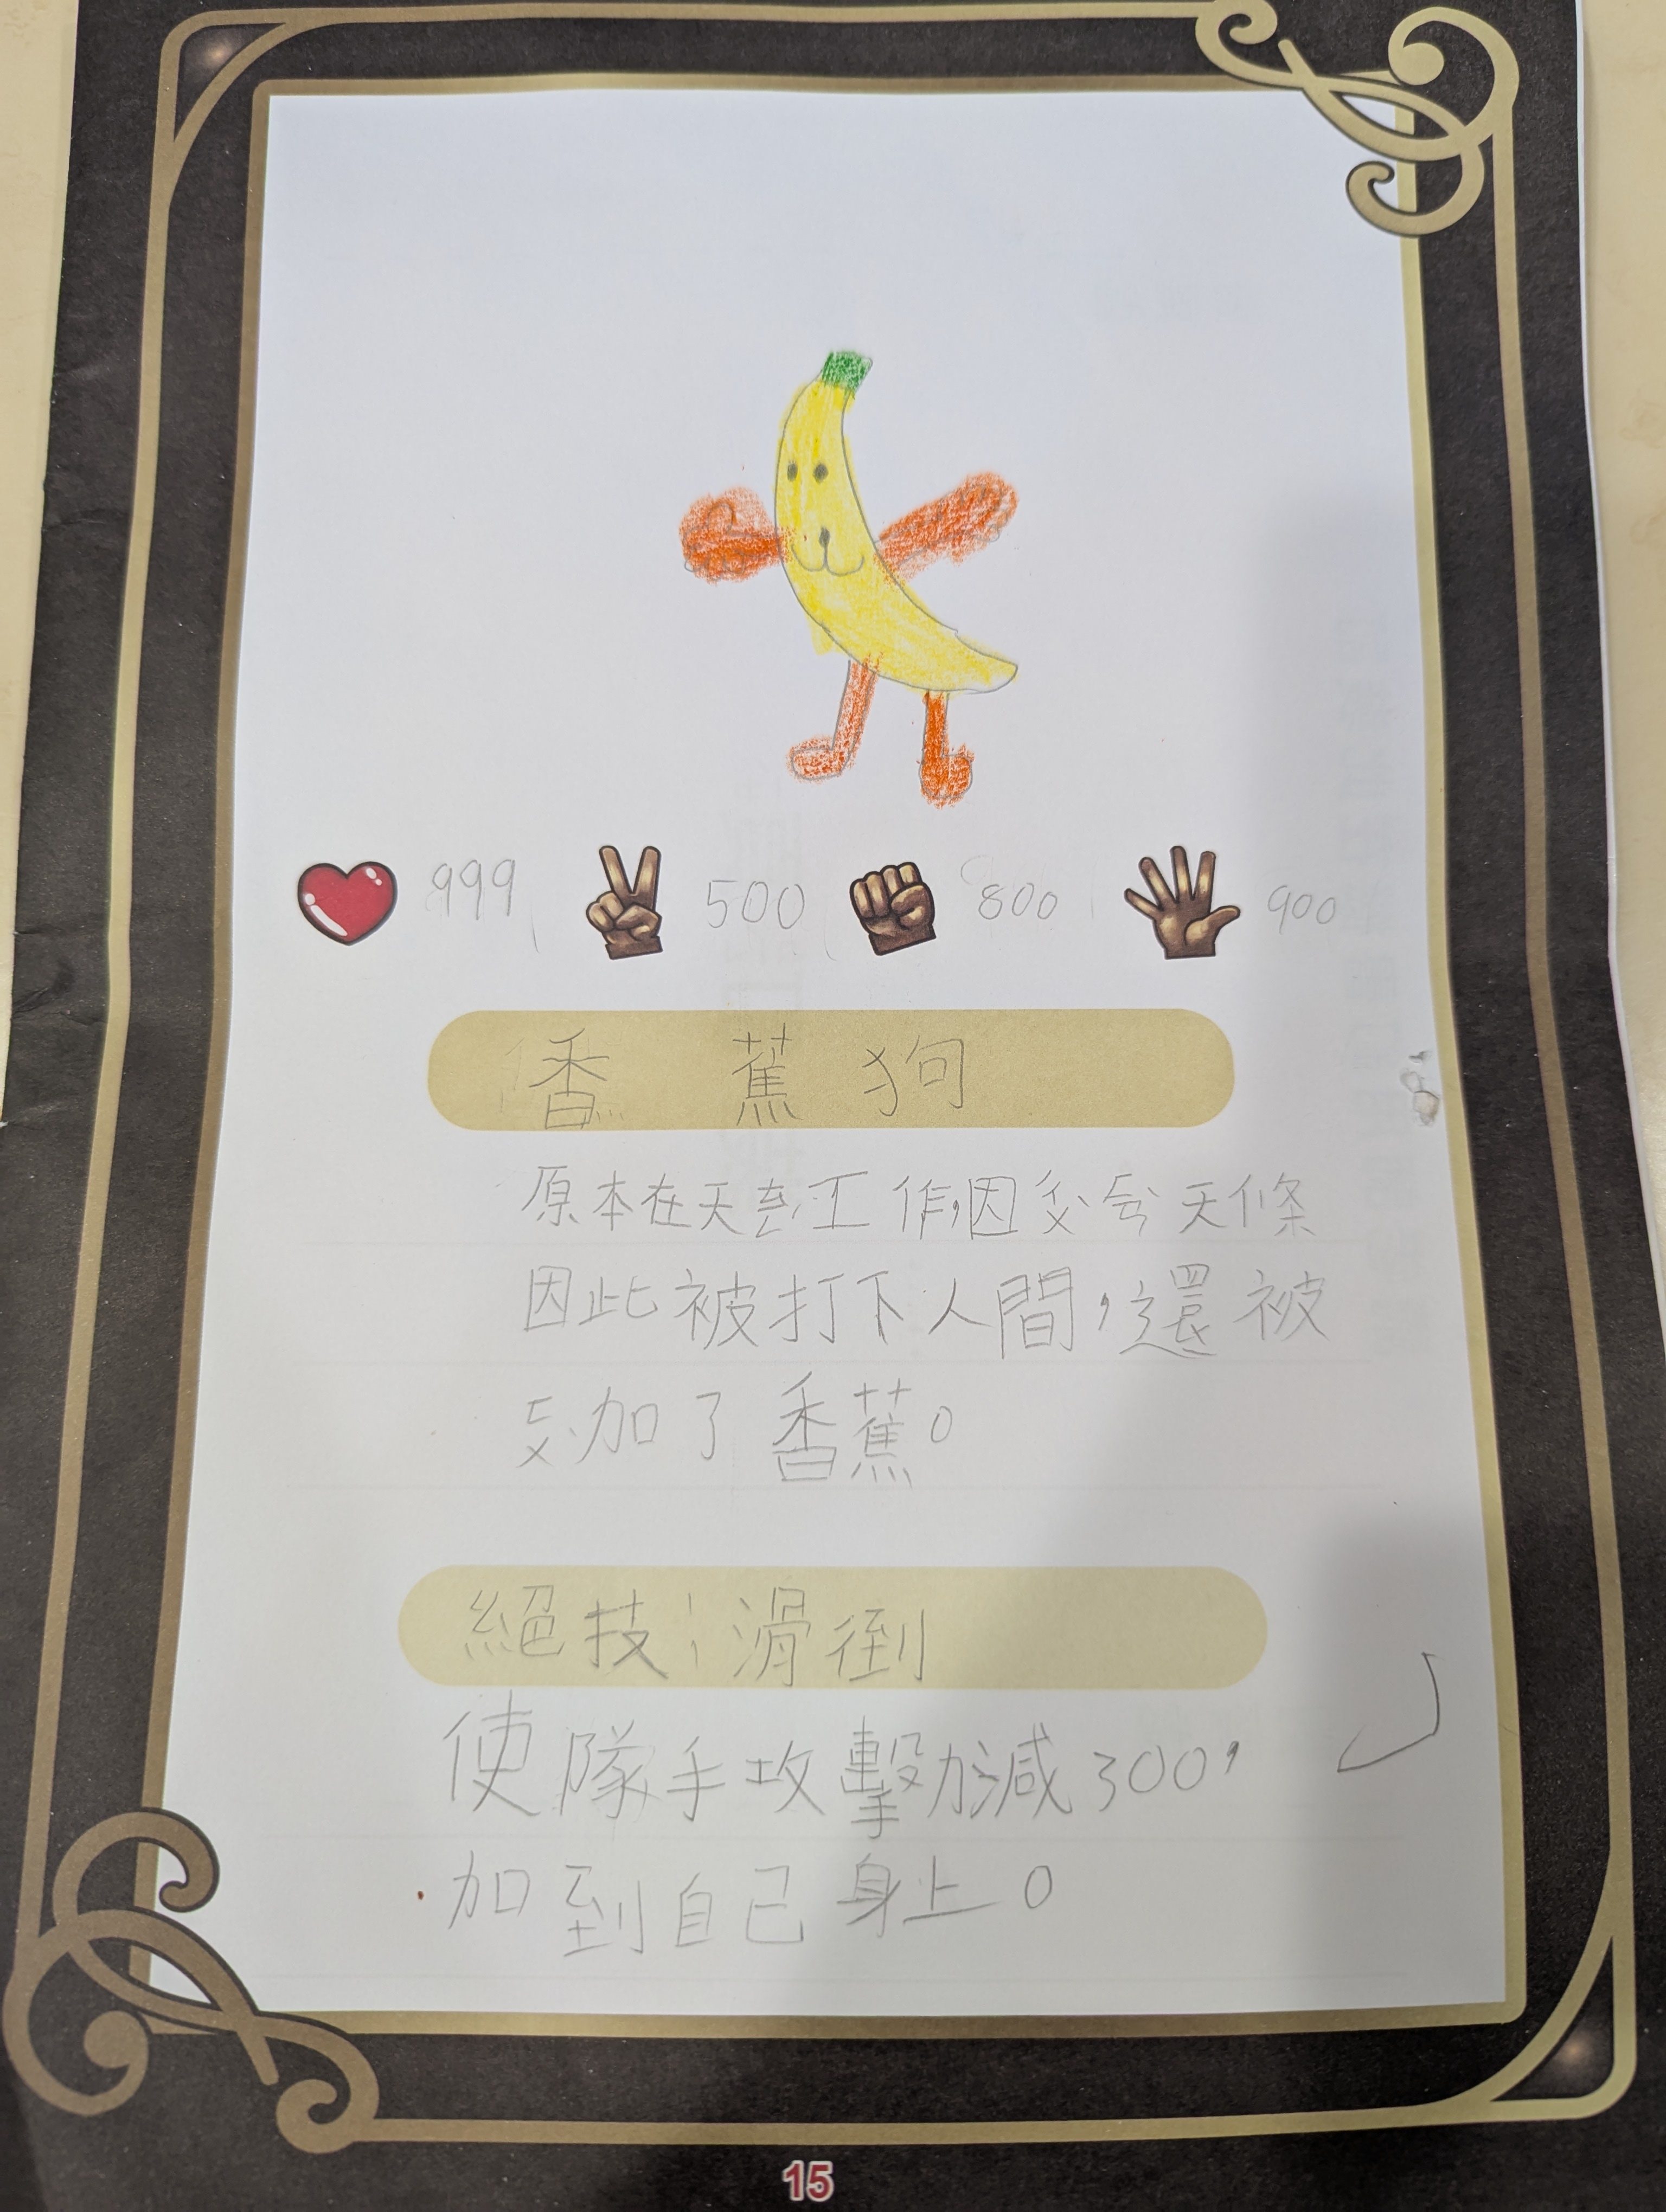 999 500 800 900
香蕉狗
原本在天ㄊㄤˊ工作,因ㄨㄟˊ天條
因此被打下人間,還被
ㄎㄡˋ加了香蕉。
絕技:滑倒
使隊手攻擊力減300,
加到自己身上。
15